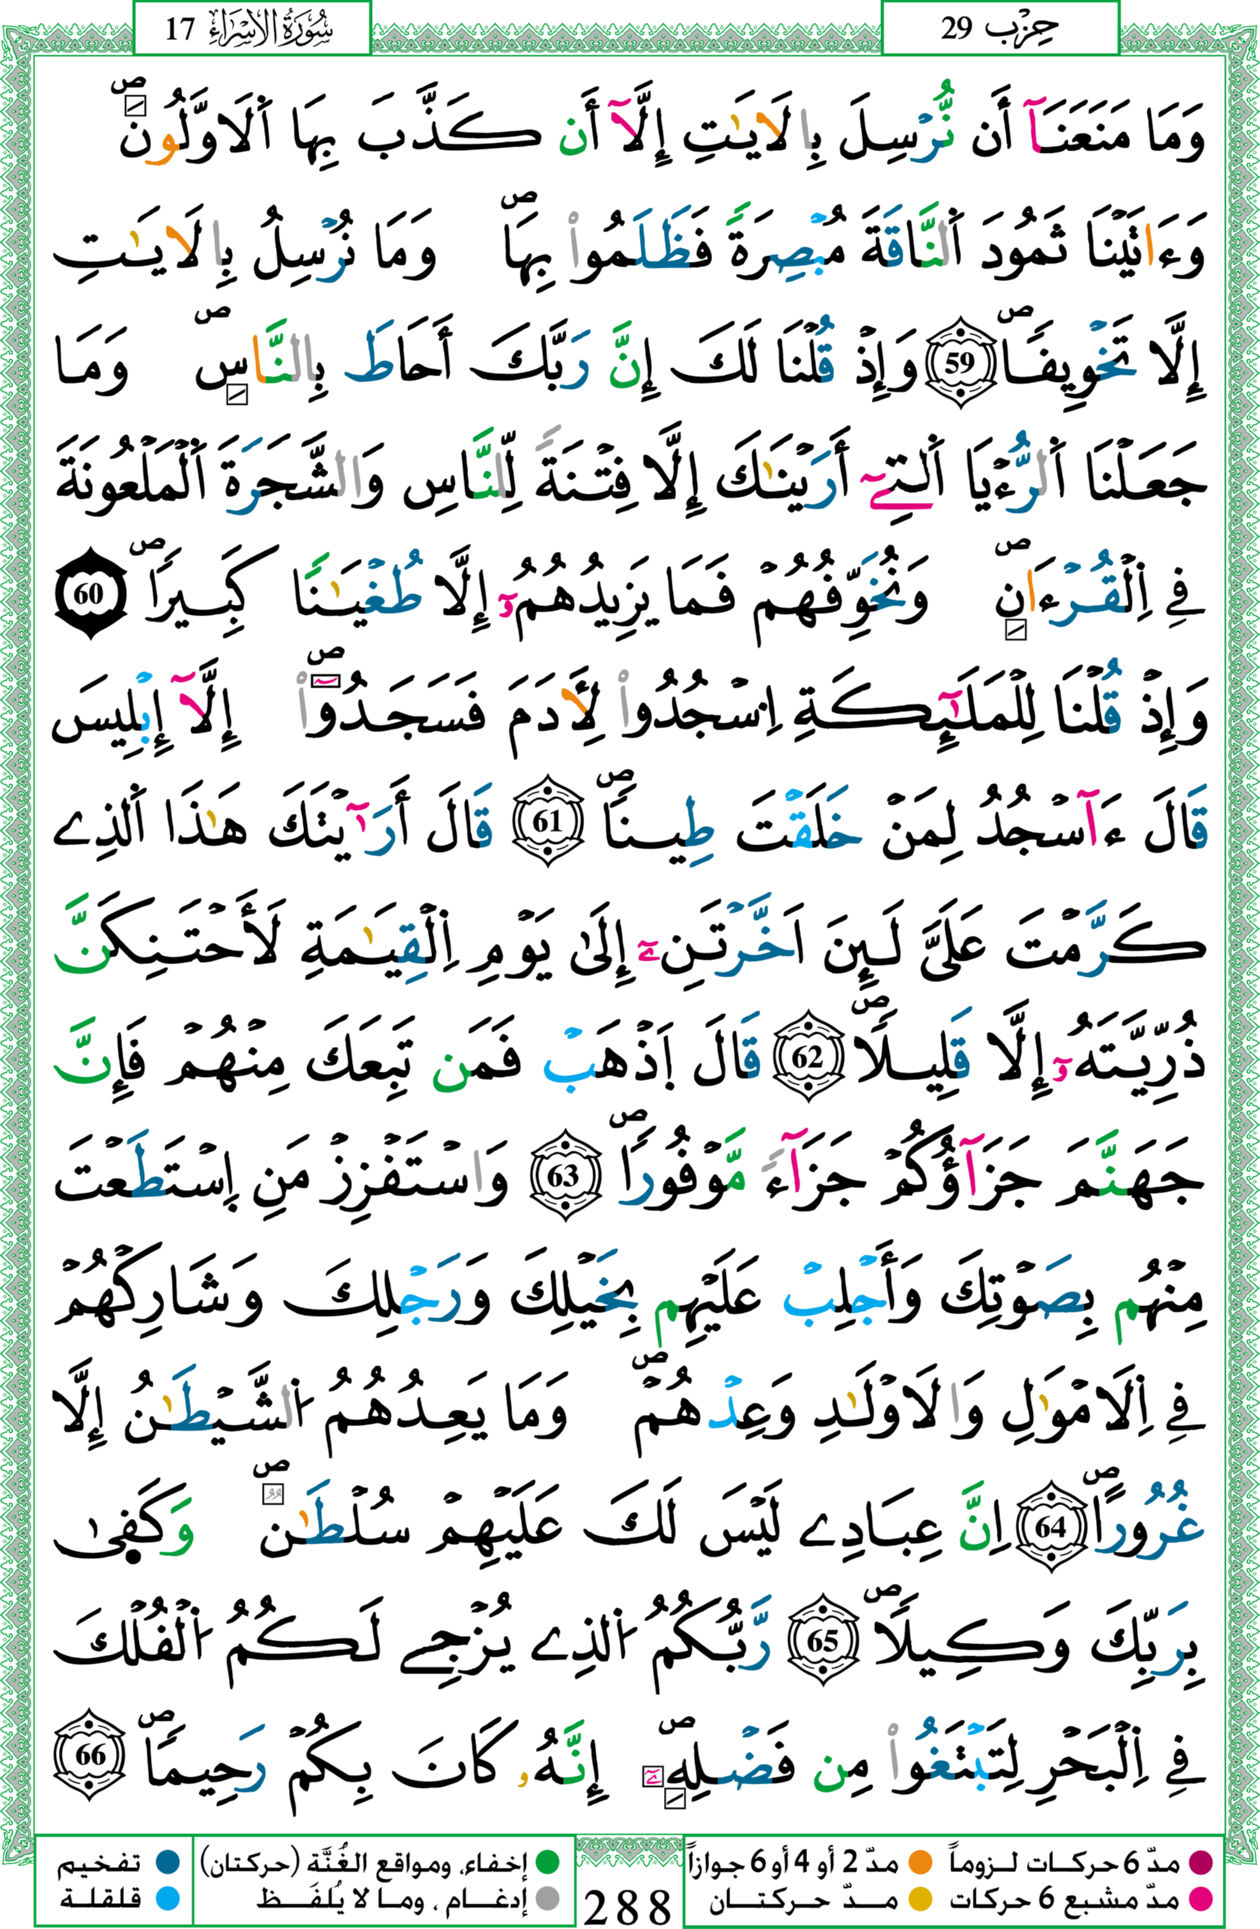 حِزْب 29
سُورَةُ الْإِسْرَاء 17
وَمَا مَنَعَنَآ أَن نُّرْسِلَ بِالَايَٰتِ إِلَّآ أَن كَذَّبَ بِهَا اَلَاوَّلُونَۖ
وَءَاتَيْنَا ثَمُودَ اَلنَّاقَةَ مُبْصِرَةٗ فَظَلَمُواْ بِهَاۖ وَمَا نُرْسِلُ بِالَايَٰتِ
إِلَّا تَخْوِيفٗاۖ 59 وَإِذْ قُلْنَا لَكَ إِنَّ رَبَّكَ أَحَاطَ بِالنَّاسِۖ وَمَا
جَعَلْنَا اَلرُّءْيَا اَلتِےٓ أَرَيْنَٰكَ إِلَّا فِتْنَةٗ لِّلنَّاسِ وَالشَّجَرَةَ اَلْمَلْعُونَةَ
فِے اِلْقُرْءَانِۖ وَنُخَوِّفُهُمْ فَمَا يَزِيدُهُمُۥٓ إِلَّا طُغْيَٰنٗا كَبِيرٗاۖ 60
وَإِذْ قُلْنَا لِلْمَلَٰٓئِكَةِ اِسْجُدُواْ لِأٓدَمَ فَسَجَدُوٓاْۖ إِلَّآ إِبْلِيسَ
قَالَ ءَآسْجُدُ لِمَنْ خَلَقْتَ طِينٗاۖ 61 قَالَ أَرَٰٓيْتَكَ هَٰذَا اَلذِے
كَرَّمْتَ عَلَيَّ لَئِنَ اَخَّرْتَنِۦٓ إِلَىٰ يَوْمِ اِلْقِيَٰمَةِ لَأَحْتَنِكَنَّ
ذُرِّيَّتَهُۥٓ إِلَّا قَلِيلٗاۖ 62 قَالَ اَذْهَبْ فَمَن تَبِعَكَ مِنْهُمْ فَإِنَّ
جَهَنَّمَ جَزَآؤُكُمْ جَزَآءٗ مَّوْفُورٗاۖ 63 وَاسْتَفْزِزْ مَنِ اِسْتَطَعْتَ
مِنْهُم بِصَوْتِكَ وَأَجْلِبْ عَلَيْهِم بِخَيْلِكَ وَرَجْلِكَ وَشَارِكْهُمْ
فِے اِلَامْوَٰلِ وَالَاوْلَٰدِ وَعِدْهُمْۖ وَمَا يَعِدُهُمُ اُلشَّيْطَٰنُ إِلَّا
غُرُورٗاۖ 64 اِنَّ عِبَادِے لَيْسَ لَكَ عَلَيْهِمْ سُلْطَٰنٞۖ وَكَفٜىٰ
بِرَبِّكَ وَكِيلٗاۖ 65 رَّبُّكُمُ اُلذِے يُزْجِے لَكُمُ اُلْفُلْكَ
فِے اِلْبَحْرِ لِتَبْتَغُواْ مِن فَضْلِهِۦٓۖ إِنَّهُۥ كَانَ بِكُمْ رَحِيمٗاۖ 66
مدّ 6 حركات لـزوماً مدّ 2 أو 4 أو 6 جوازاً إخفاء، ومواقع الغُنَّة (حركتان) تفخيم
مدّ مشبع 6 حركات مــدّ حـركتــان إدغـام ، ومـا لا يُلفَـظ قلقلة
288